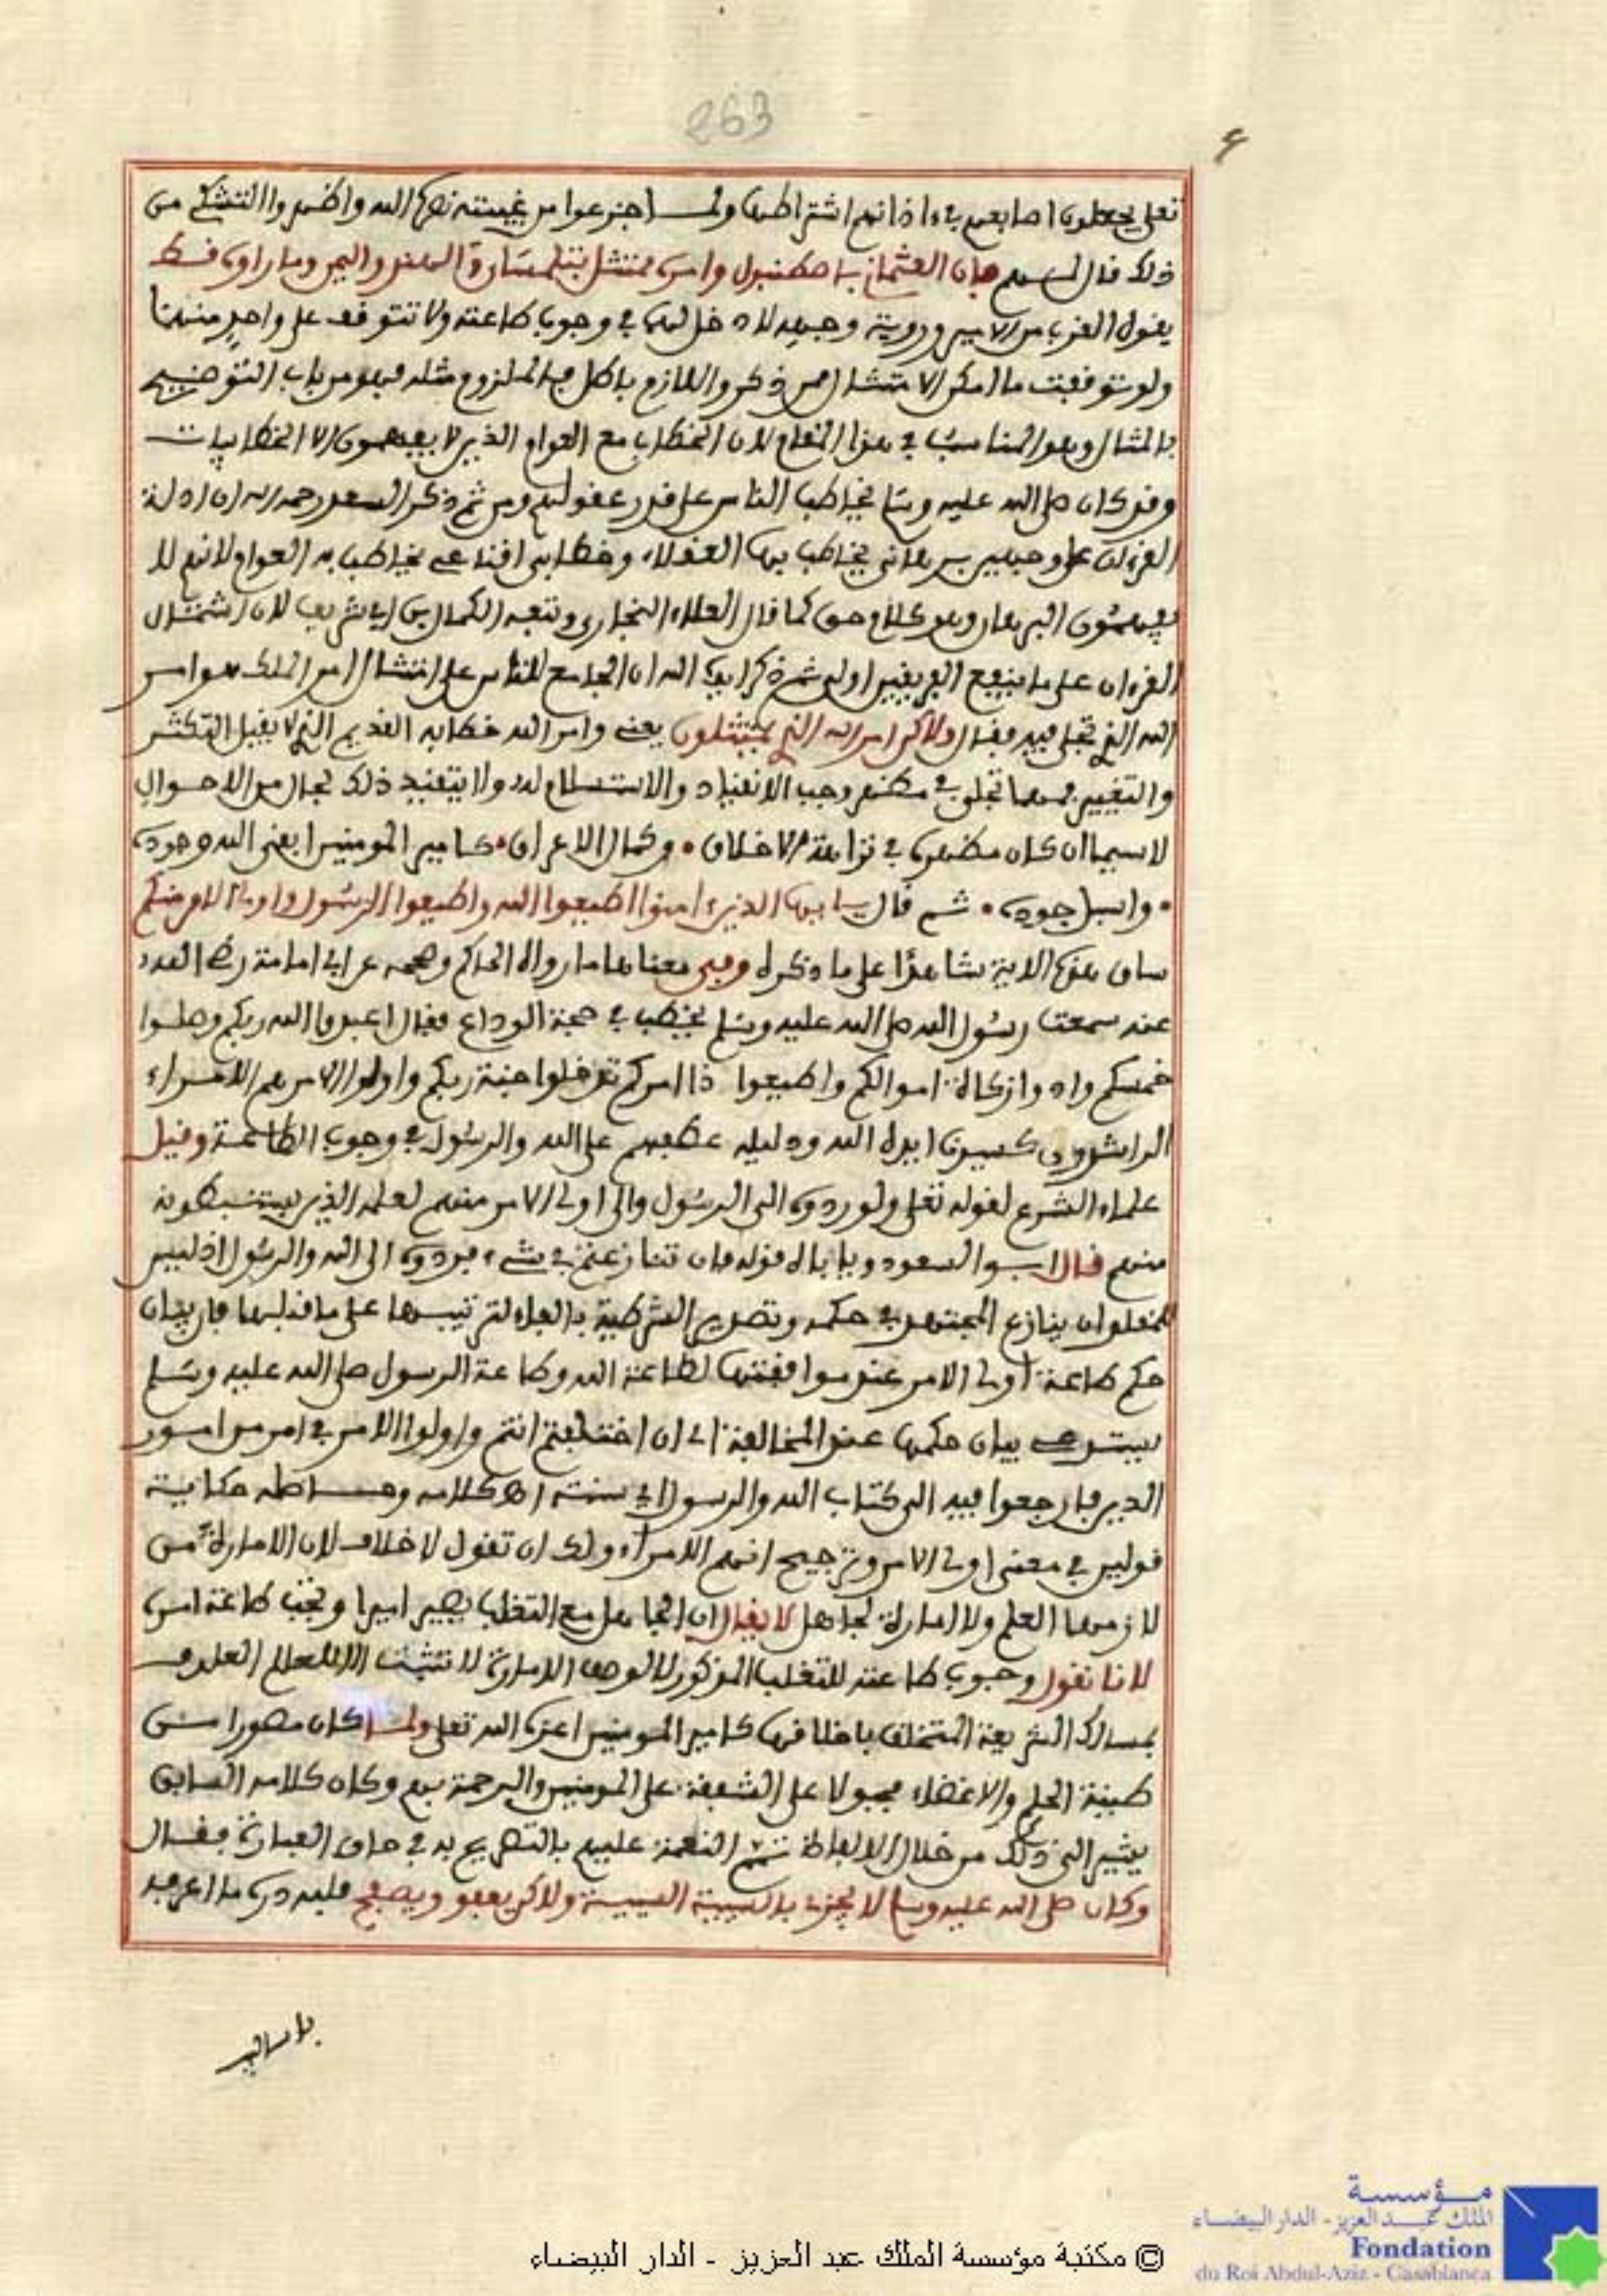 263
تعلى يجعلون اصابعهم في ءاذانهم اشتراطها ولما جزعوا من غيبته نصره الله واظهروا التشكي من
ذلك قال لهم فإن العثماني باصطنبول وامره ممتثل بتلمسان والهند واليمن وما راوه قط
يقول القرب من الامير ورويته وجهه لا دخل لهما في وجوب طاعته ولا تتوقف على واحد منهما
ولو توقفت ما امكن الامتثال ممن ذكر واللازم باطل فالملزوم مثله فهو من باب التوضيح
بالمثال وهو المناسب في هذا المقام لان الخطاب مع العوام الذين لا يفهمون الا الخطابيات
وقد كان صلى الله عليه وسلم يخاطب الناس على قدر عقولهم ومن ثم ذكر السعد رحمه الله ان ادلة
القرءان على وجهين برهاني يخاطب بها العقلاء وخطابي اقناعي يخاطب به العوام لانهم لا
يفهمون البرهان وهو كلام حق كما قال العلاء البخاري وتبعه الكمال بن ابي شريف لان اشتمال
القرءان على ما ينفع الفريقين اولى ثم ذكر ايده الله ان الجامع للناس على امتثال امر الملك هو امر
الله الذي تجلى فيه فقال ولاكن امر الله الذي يمتثلون يعني وامر الله خطابه القديم الذي لا يقبل التكثر
والتغيير فمهما تجلى في مظهر وجب الانقياد والاستسلام له ولا يتقيد ذلك بحال من الاحوال
لاسيما ان كان مظهره في نزاهة الاخلاق • وكمال الاعراق • كامير المومنين ابقى الله وجوده
• واسبل جوده • ثم قال يا ايها الذين ءامنوا اطيعوا الله واطيعوا الرسول واولي الامر منكم
ساق هذه الاية شاهدا على ما ذكره وفي معناها ما رواه الحاكم وصححه عن ابي امامة رضي الله
عنه سمعت رسول الله صلى الله عليه وسلم يخطب في حجة الوداع فقال اعبدوا الله ربكم وصلوا
خمسكم وادوا زكاة اموالكم واطيعوا ذا امركم تدخلوا جنة ربكم واولوا الامر هم الامراء
الراشدون كسيدنا ايده الله ودليله عطفهم على الله والرسول في وجوب الطاعة وقيل
علماء الشرع لقوله تعلى ولو ردوه الى الرسول والى اولي الامر منهم لعلمه الذين يستنبطونه
منهم قال ابو السعود ويأباه قوله فان تنازعتم في شيء فردوه الى الله والرسول اذ ليس
للمقلد ان ينازع المجتهد في حكمه وتصدير الشرطية بالفاء لترتيبها على ما قبلها فان بيان
حكم طاعة اولي الامر عند موافقتها لطاعة الله وطاعة الرسول صلى الله عليه وسلم
يستدعي بيان حكمها عند المخالفة اي ان اختلفتم انتم واولوا الامر في امر من امور
الدين فارجعوا فيه الى كتاب الله والرسول اي سنته اه كلامه وحاصله حكاية
قولين في معنى اولي الامر وترجيح انهم الامراء ولك ان تقول لا خلاف لان الامارة من
لازمها العلم ولا امارة لجاهل لا يقال ان الجاهل مع التغلب يصير اميرا وتجب طاعة امره
لانا نقول وجوب طاعته للتغلب المذكور لا لوصف الامارة لا تثبت الا للعالم العارف
بمسالك الشريعة المتخلق باخلاقها كامير المومنين اعزه الله تعلى ولما كان مصورا من
طينة الحلم والاغضاء مجبولا على الشفقة على المومنين والرحمة بهم وكان كلامه السابق
يشير الى ذلك من خلال الالفاظ تمم النعمة عليهم بالتصريح به في صادق العبارة فقال
وكان صلى الله عليه وسلم لا يجزي بالسيئة السيئة ولاكن يعفو ويصفح فلله دره ما اعرفه
بالسير
مؤسسة
الملك عبد العزيز - الدار البيضاء
Fondation
du Roi Abdul-Aziz - Casablanca
© مكتبة مؤسسة الملك عبد العزيز - الدار البيضاء